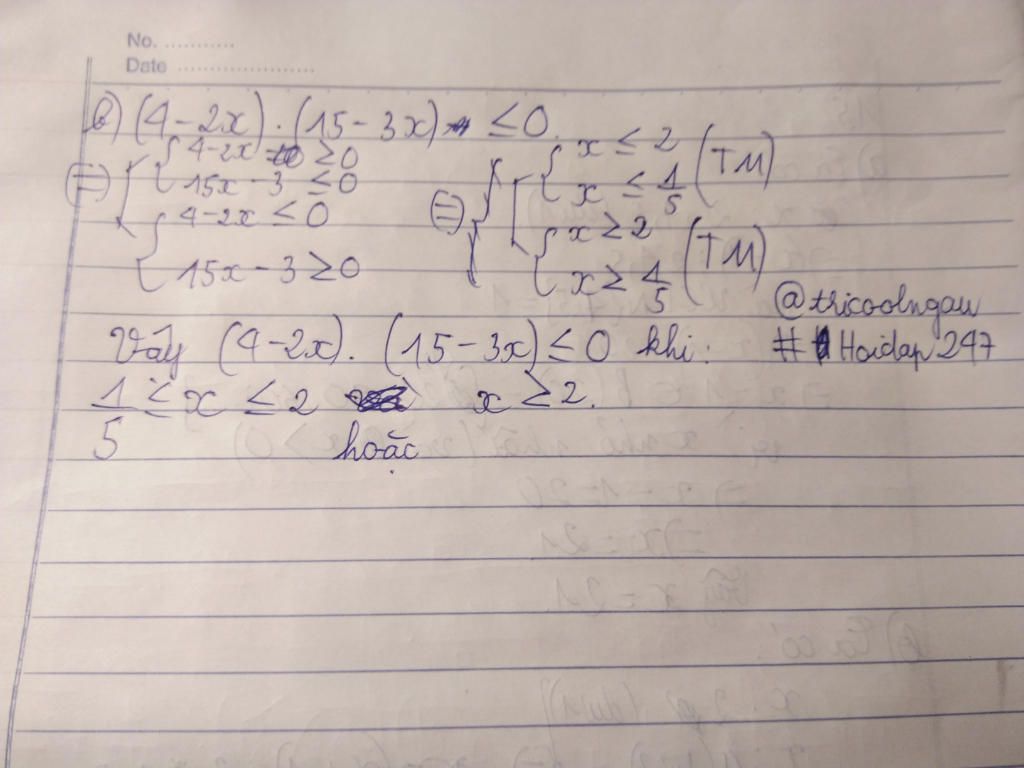 No. ...........
Date .......................
b) (4-2x) . (15-3x) ≤ 0.
⇔ 4-2x ≥ 0
15x-3 ≤ 0
4-2x ≤ 0
15x-3 ≥ 0
⇔ x ≤ 2
x ≤ 1/5 (TM)
x ≥ 2
x ≥ 1/5 (TM)
@tricoolngau
#Hoidap247
Vậy (4-2x). (15-3x) ≤ 0 khi:
1/5 ≤ x ≤ 2 hoặc x ≥ 2.